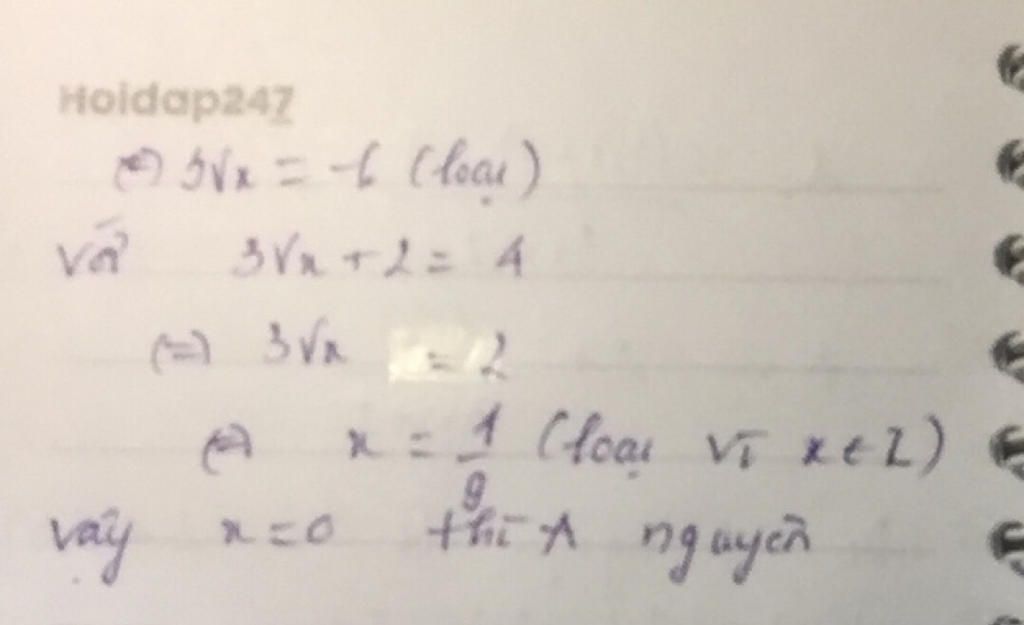 Hoidap247
(=) 3√x = -6 (loại)
với 3√x + 2 = 4
(=) 3√x = 2
(=) x = 1/9 (loại vì x ∈ Z)
vậy x = 0 thì A nguyên